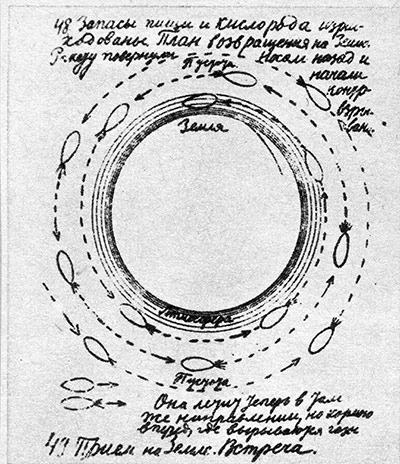 48. Запасы пищи и кислорода израс-
ходованы. План возвращения на Землю.
Ракету повернули носом назад и
начали
контр
взры
вание
Пустота
Земля
Атмосфера
Пустота
Она летит теперь в том
же направлении, но кормою
вперед, где вырываются газы
49 Прием на Земле. Встреча.